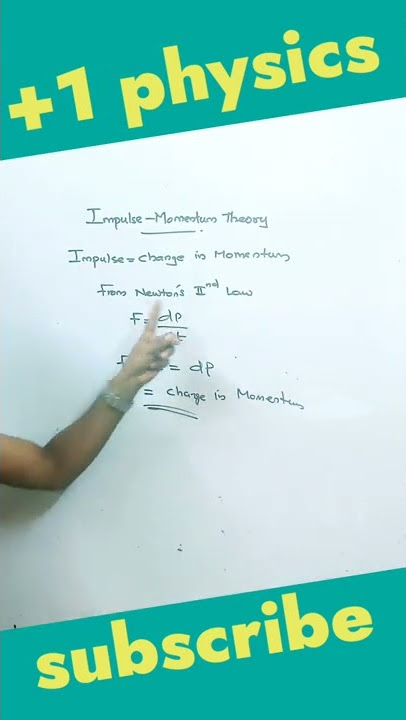 +1 physics
Impulse-Momentum Theory
Impulse = change in Momentum
from Newton's IInd Law
F = dP
= dP
= change in Momentum
subscribe